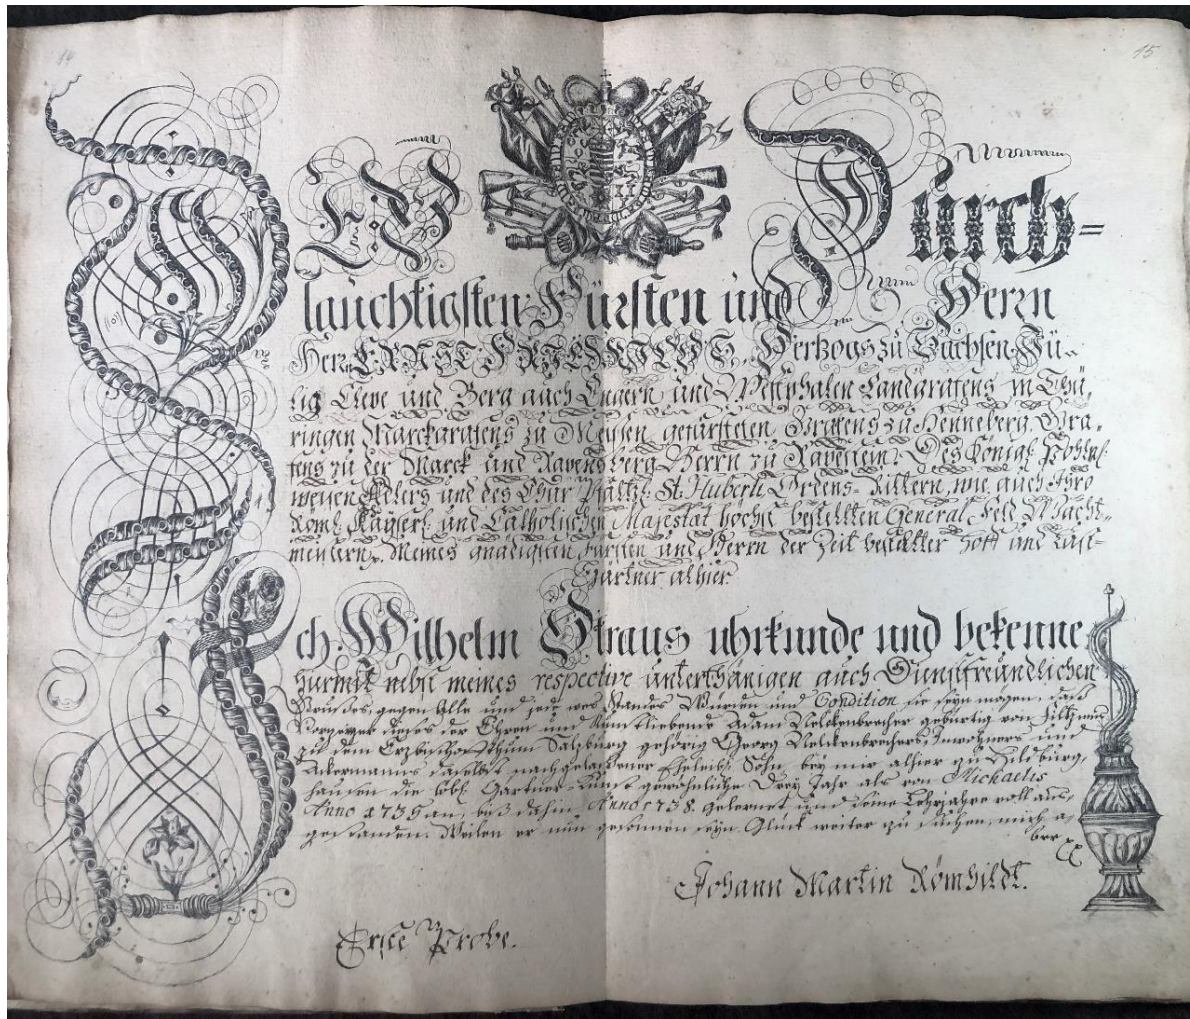 14
15
Des Durch=
lauchtigsten Fürsten und Herrn
Herrn ERNST FRIEDRICHS, Hertzogs zu Sachsen, Jü-
lig Cleve und Berg auch Engern und Westphalen Landgrafens in Thü,
ringen Marckgrafens zu Meisen, gefürsteten Grafens zu Henneberg, Gra-
fens zu der Marck und Ravensberg Herrn zu Ravenstein: Des Königl. Pohln.
weisen Adlers und des Chur Pfältzl. St. Huberti Ordens-Rittern, wie auch Ihro
Röml. Kayserl. und Catholischen Majestat höchst bestellten General Feld Wacht-
meistern, Meines gnädigsten Fürsten und Herrn der Zeit bestellter Hoff und Lust-
Gärtner alhier
Ich Wilhelm Straus uhrkunde und bekenne
hiermit nebst meines respective unterthänigen auch Dienstfreundlichen
Grusses, gegen Alle und jede wes Standes Würden und Condition sie seyn mögen, daß
Vorzeiger dieses der Ehren und Kunstliebende Adam Nelckenbrecher gebürtig von
zu dem Ertzbischoffthum Saltzburg gehörig Georg Nelckenbrechers, Inwohners und
Ackermanns daselbst nachgelassener Eheleibl. Sohn, bey mir alhier zu Hildburg,
hausen die löbl. Gärtner-Kunst gewöhnliche Drey Jahr als von Michaelis
Anno 1735 an, biß dahin Anno 1738. gelernet und seine Lehrjahre voll aus,
gestanden. Weilen er nun gesonnen sein Glück weiter zu suchen, mich a,
ber
Johann Martin Römhildt.
Erste Probe.